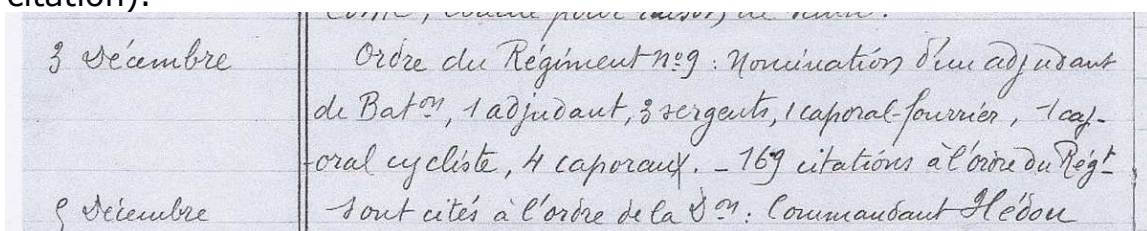 citation).
3 Décembre Ordre du Régiment nº9 : Nomination d'un adjudant
de Bat on, 1 adjudant, 3 sergents, 1 caporal-fourrier, 1 cap-
oral cycliste, 4 caporaux. - 169 citations à l'ordre du Régt-
5 Décembre Sont cités à l'ordre de la Don : Commandant Hédou